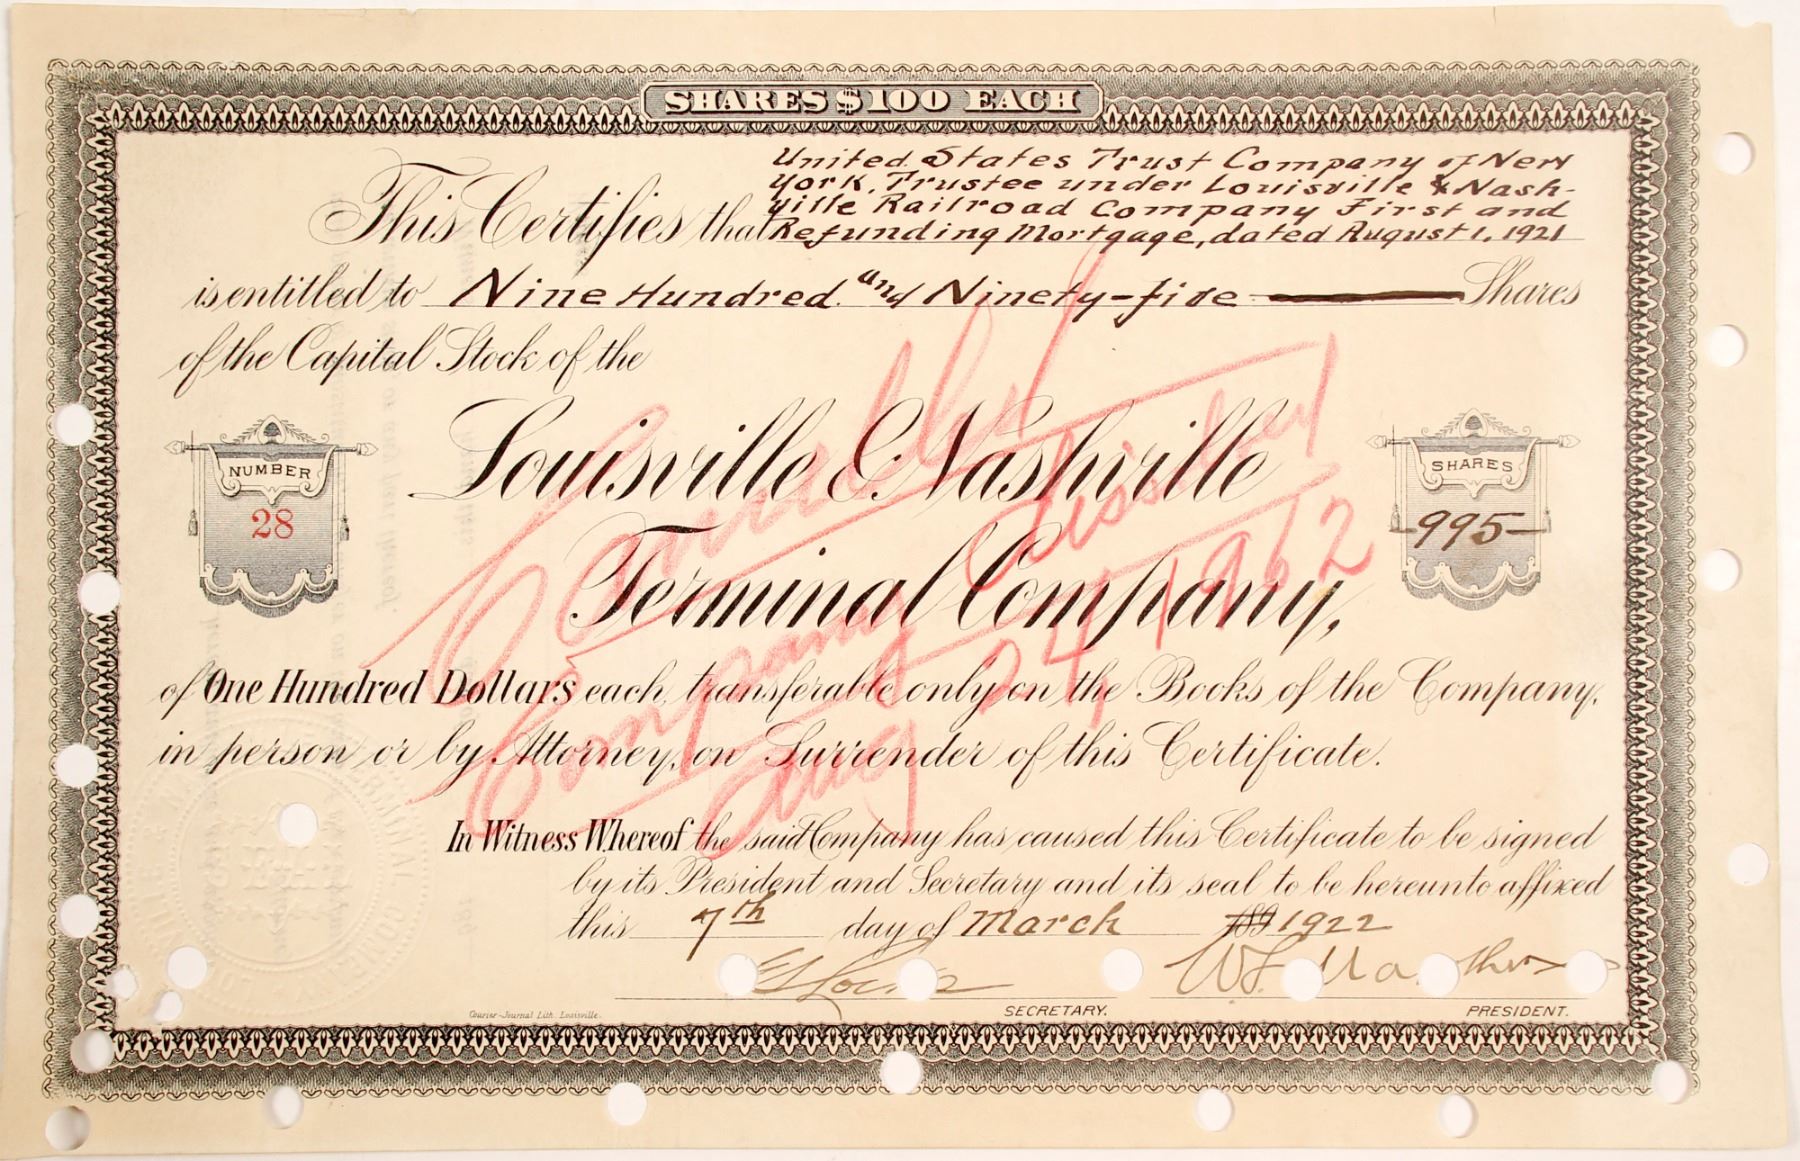 SHARES $100 EACH
United States Trust Company of New
York, Trustee under Louisville & Nash-
ville Railroad Company First and
This Certifies that Refunding Mortgage, dated August 1, 1921
is entitled to Nine Hundred and Ninety-five Shares
of the Capital Stock of the
Louisville & Nashville
NUMBER
28
SHARES
-995-
Terminal Company,
of One Hundred Dollars each, transferable only on the Books of the Company,
in person or by Attorney, on Surrender of this Certificate.
Company
Aug 24, 1962
In Witness Whereof the said Company has caused this Certificate to be signed
by its President and Secretary and its seal to be hereunto affixed
this 7th day of March 189 1922
SECRETARY.
PRESIDENT.
Courier-Journal Lith. Louisville.